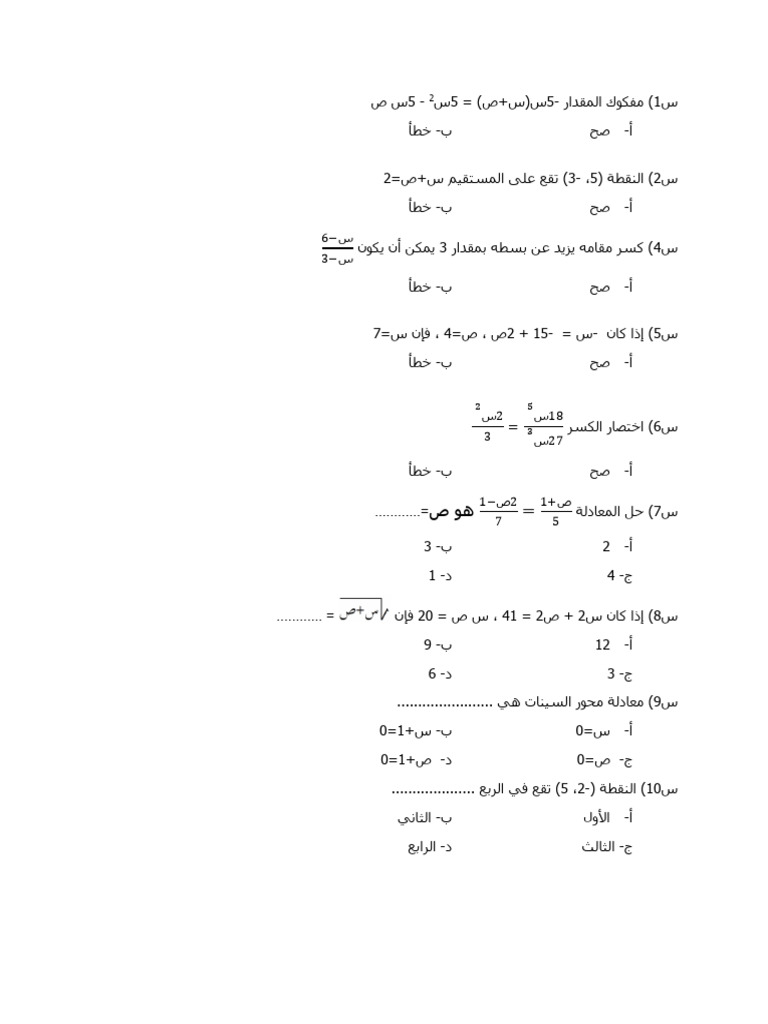 س1) مفكوك المقدار -5س(س+ص) = 5س² - 5س ص
أ- صح ب- خطأ
س2) النقطة (5، -3) تقع على المستقيم س+ص=2
أ- صح ب- خطأ
س4) كسر مقامه يزيد عن بسطه بمقدار 3 يمكن أن يكون (س−6)/(س−3)
أ- صح ب- خطأ
س5) إذا كان -س = -15 + 2ص ، ص=4 ، فإن س=7
أ- صح ب- خطأ
س6) اختصار الكسر 18س⁵/27س³ = 2س²/3
أ- صح ب- خطأ
س7) حل المعادلة (ص+1)/5 = (2ص−1)/7 هو ص=............
أ- 2 ب- 3
ج- 4 د- 1
س8) إذا كان س2 + ص2 = 41 ، س ص = 20 فإن √(س+ص) = ............
أ- 12 ب- 9
ج- 3 د- 6
س9) معادلة محور السينات هي .......................
أ- س=0 ب- س+1=0
ج- ص=0 د- ص+1=0
س10) النقطة (-2، 5) تقع في الربع ....................
أ- الأول ب- الثاني
ج- الثالث د- الرابع